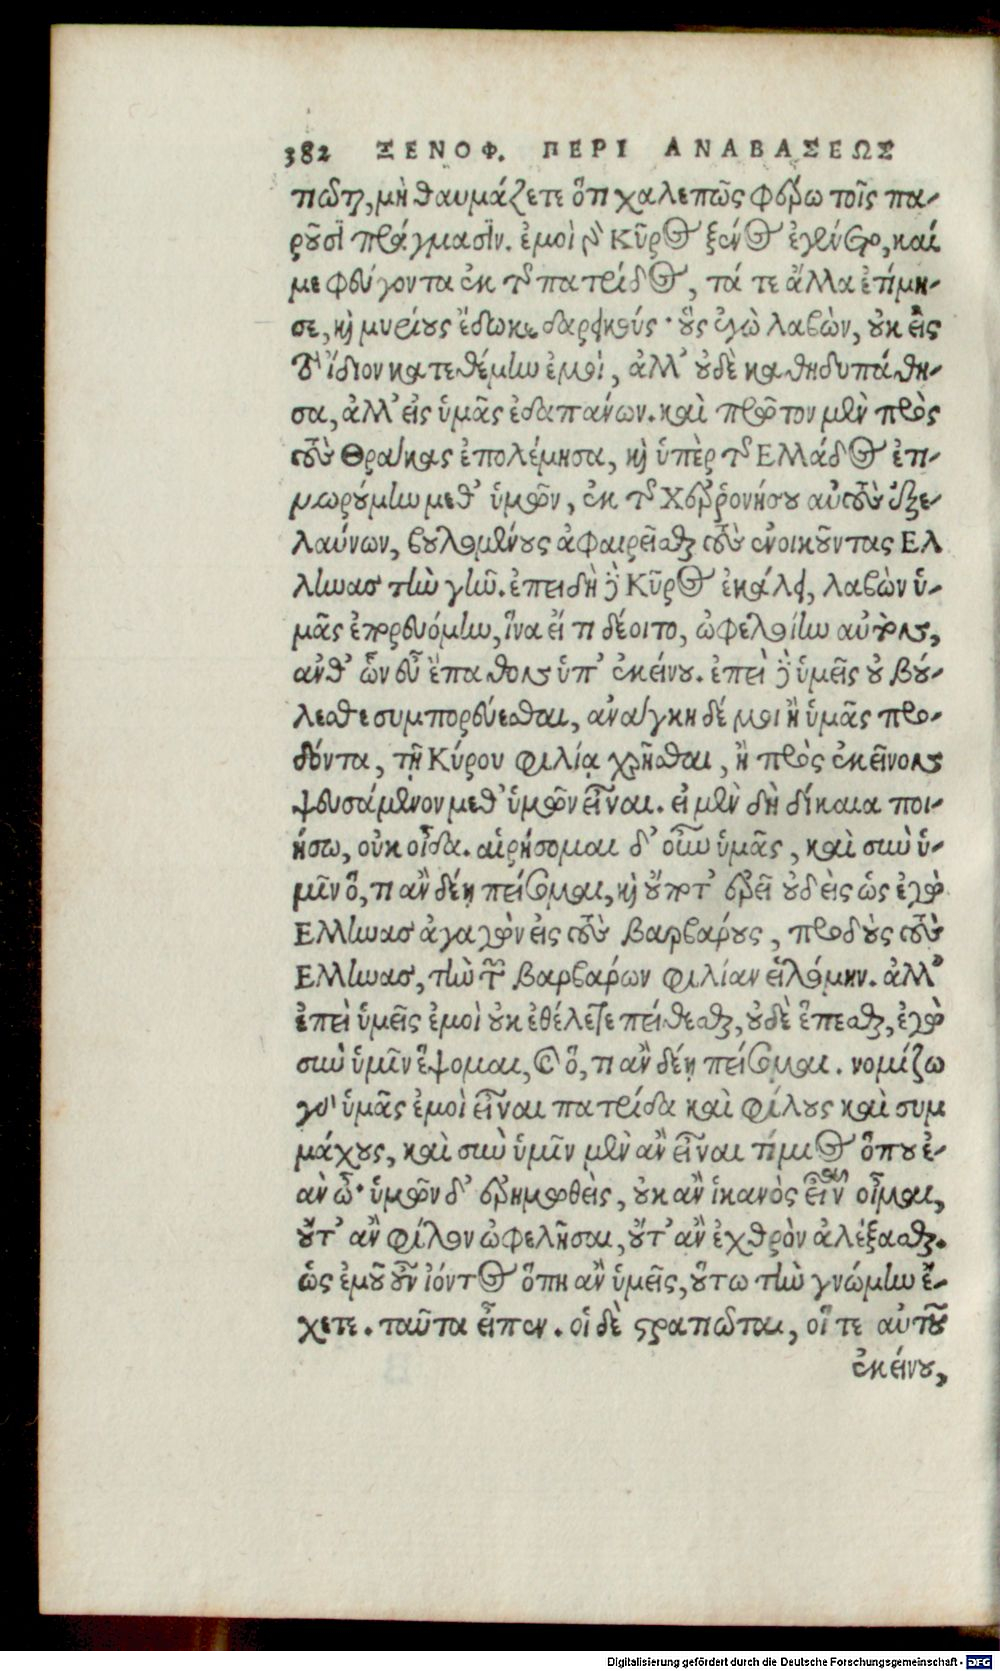 382 ΞΕΝΟΦ. ΠΕΡΙ ΑΝΑΒΑΣΕΩΣ
τιῶται, μὴ θαυμάζετε ὅτι χαλεπῶς φέρω τοῖς πα-
ροῦσι πράγμασιν. ἐμοὶ γὰρ Κῦρος ξένος ἐγένετο, καί
με φεύγοντα ἐκ τῆς πατρίδος, τά τε ἄλλα ἐτίμη-
σε, καὶ μυρίους ἔδωκε δαρεικούς· οὓς ἐγὼ λαβὼν, οὐκ εἰς
τὸ ἴδιον κατεθέμην ἐμοί, ἀλλ' οὐδὲ καθηδυπάθη-
σα, ἀλλ' εἰς ὑμᾶς ἐδαπάνων. καὶ πρῶτον μὲν πρὸς
τοὺς Θρᾷκας ἐπολέμησα, καὶ ὑπὲρ τῆς Ελλάδος ἐτι-
μωρούμην μεθ' ὑμῶν, ἐκ τῆς Χερρονήσου αὐτοὺς ἐξε-
λαύνων, βουλομένους ἀφαιρεῖσθαι τοὺς ἐνοικοῦντας Ελ
ληνας τὴν γῆν. ἐπειδὴ δὲ Κῦρος ἐκάλει, λαβὼν ὑ-
μᾶς ἐπορευόμην, ἵνα εἴ τι δέοιτο, ὠφελοίην αὐτὸν,
ἀνθ' ὧν εὖ ἔπαθον ὑπ' ἐκείνου. ἐπεὶ δὲ ὑμεῖς οὐ βού-
λεσθε συμπορεύεσθαι, ἀνάγκη δέ μοι ἢ ὑμᾶς προ-
δόντα, τῇ Κύρου φιλίᾳ χρῆσθαι, ἢ πρὸς ἐκεῖνον
ψευσάμενον μεθ' ὑμῶν εἶναι. εἰ μὲν δὴ δίκαια ποι-
ήσω, οὐκ οἶδα. αἱρήσομαι δ' οὖν ὑμᾶς, καὶ σὺν ὑ-
μῖν ὅ, τι ἂν δέῃ πείσομαι, καὶ οὔποτ' ἐρεῖ οὐδεὶς ὡς ἐγὼ
Ελληνας ἀγαγὼν εἰς τοὺς βαρβάρους, προδοὺς τοὺς
Ελληνας, τὴν τῶν βαρβάρων φιλίαν εἱλόμην. ἀλλ'
ἐπεὶ ὑμεῖς ἐμοὶ οὐκ ἐθέλετε πείθεσθαι, οὐδὲ ἕπεσθαι, ἐγὼ
σὺν ὑμῖν ἕψομαι, καὶ ὅ, τι ἂν δέῃ πείσομαι. νομίζω
γὰρ ὑμᾶς ἐμοὶ εἶναι πατρίδα καὶ φίλους καὶ συμ
μάχους, καὶ σὺν ὑμῖν μὲν ἂν εἶναι τίμιος ὅπου ἐ-
ὰν ὦ· ὑμῶν δ' ἐρημωθεὶς, οὐκ ἂν ἱκανὸς εἶναι οἶμαι,
οὔτ' ἂν φίλον ὠφελῆσαι, οὔτ' ἂν ἐχθρὸν ἀλέξασθαι.
ὡς ἐμοῦ οὖν ἰόντος ὅπη ἂν ὑμεῖς, οὕτω τὴν γνώμην ἔ-
χετε. ταῦτα εἶπεν. οἱ δὲ στρατιῶται, οἵ τε αὐτοῦ
ἐκείνου,
Digitalisierung gefördert durch die Deutsche Forschungsgemeinschaft - DFG